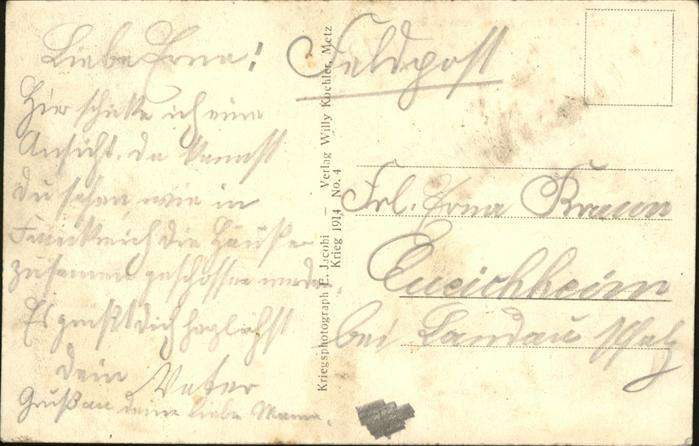 Liebe Erna!
Hier schicke ich eine
Ansicht. Da kannst
Du sehen wie in
Frankreich die Häuser
zusammen geschossen werden.
Es grüßt Dich herzlichst
Dein Vater
Gruß an deine liebe Mama.
Kriegsphotograph E. Jacobi — Verlag Willy Koehler, Metz
Krieg 1914 No. 4
Feldpost
Frl. Erna Braun
Queichheim
bei Landau Pfalz